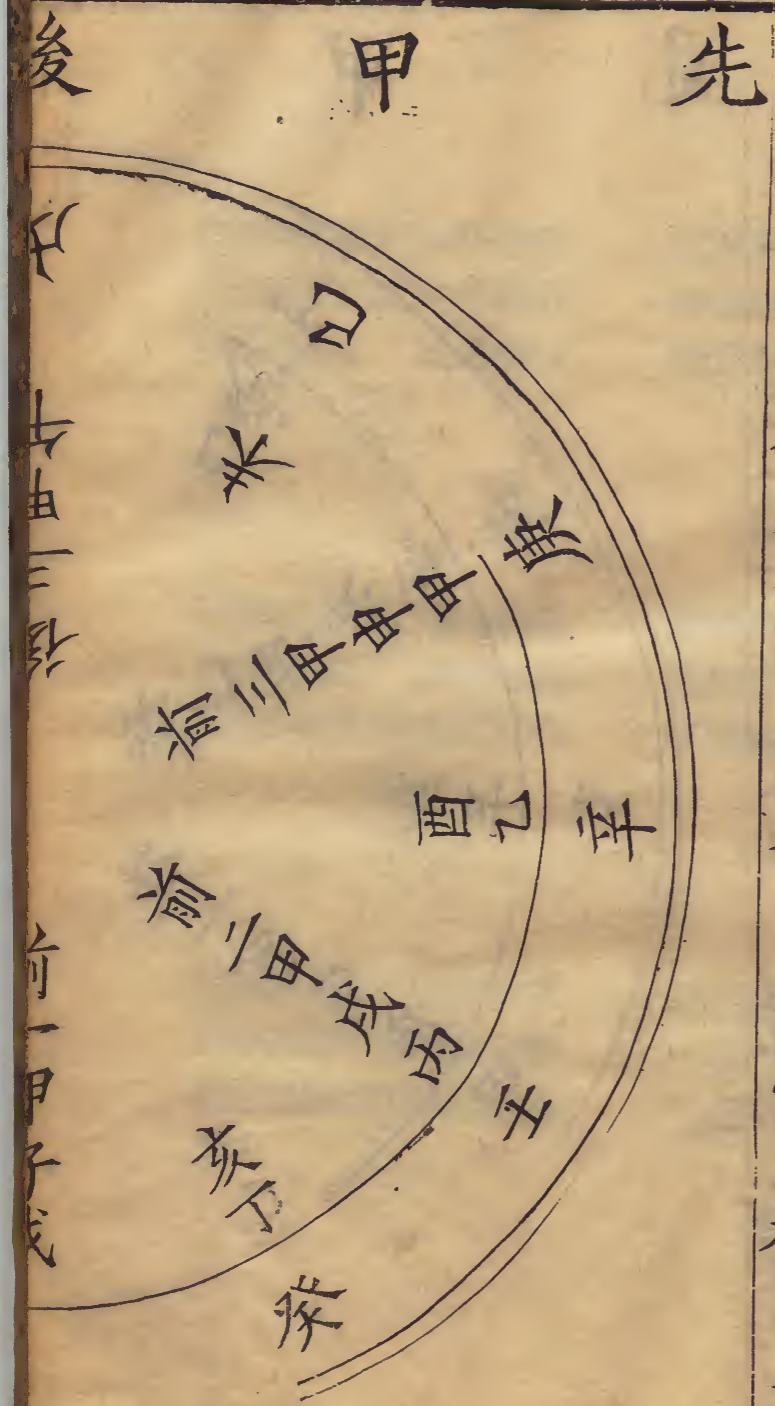 先甲後
己
未
庚
前三甲申甲
酉乙
辛
前二甲戌丙
壬
亥丁
癸
前一甲子戊